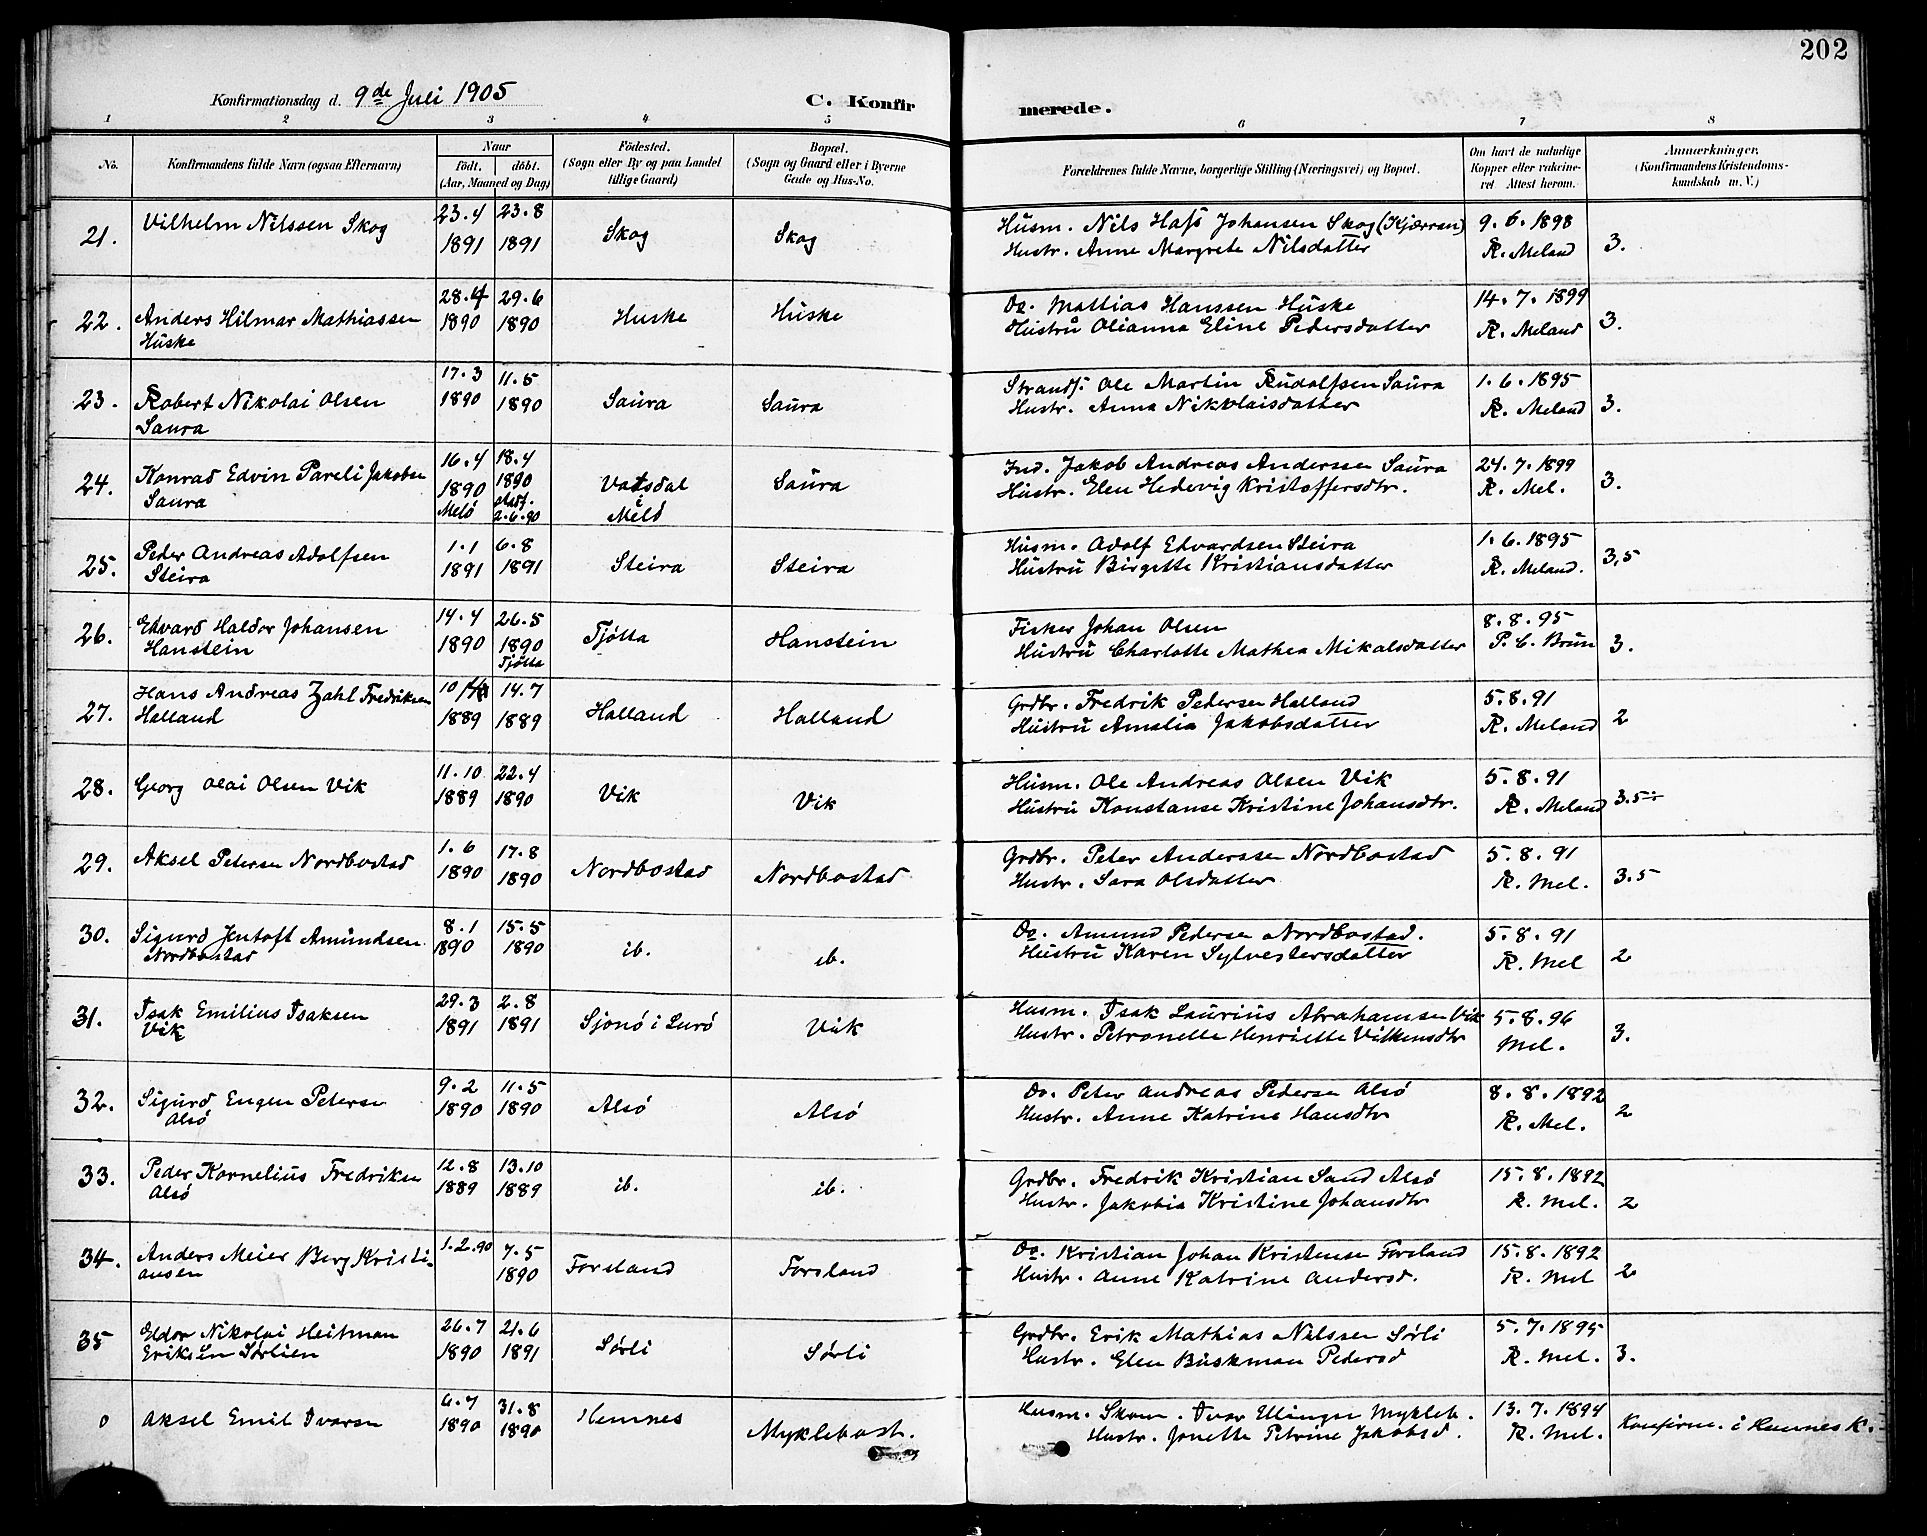 202
Konfirmationsdag d. 9de Juli 1905
C. Konfirmerede.
1 2 3 4 5 6 7 8
No.
Konfirmandens fulde Navn (ogsaa Efternavn)
Naar
födt. döbt.
(Aar, Maaned og Dag)
Födested.
(Sogn eller By og paa Landet
tillige Gaard)
Bopæl.
(Sogn og Gaard eller i Byerne
Gade og Hus-No.
Forældrenes fulde Navne, borgerlige Stilling (Næringsvei) og Bopæl.
Om havt de naturlige
Kopper eller vakcine-
ret Attest herom.
Anmærkninger,
(Konfirmandens Kristendoms-
kundskab m. V.)
21. Vilhelm Nilssen Skog 23.4 1891 23.8 1891 Skog Skog Husm. Nils Hass Johansen Skog (Kjærran) 9.6.1898
Hustr. Anne Margrete Nilsdatter R. Meland 3.
22. Anders Hilmar Mathiassen 28.4 1890 29.6 1890 Huske Huske Do. Mattias Hanssen Huske 14.7.1899
Huske Hustru Olianna Eline Pedersdatter R. Meland 3.
23. Robert Nikolai Olsen 17.3 1890 11.5 1890 Saura Saura Strands. Ole Martin Rudolfsen Saura 1.6.1895
Saura Hustr. Anna Nikolaisdatter R. Meland 3.
24. Konrad Edvin Pareli Jakobsen 16.4 1890 Melö 18.4 1890 stadf. 2.6.90 Vatsdal i Melö Saura Ind. Jakob Andreas Anderssen Saura 24.7.1899
Saura Hustr. Elen Hedevig Kristoffersdtr. R. Mel. 3.
25. Peder Andreas Adolfsen 1.1 1891 6.8 1891 Steira Steira Husm. Adolf Edvardsen Steira 1.6.1895
Steira Hustru Birgette Kristiansdatter R. Meland. 3,5
26. Edvard Haldor Johansen 14.4 1890 26.5 1890 Tjötta Tjötta Hanstein Fisker Johan Olsen 8.8.95
Hanstein Hustru Charlotte Mathea Mikalsdatter P. C. Brun 3.
27. Hans Andreas Zahl Fredriksen 1889 14.7 1889 Halland Halland Grdbr. Fredrik Pedersen Halland 5.8.91
Halland Hustru Amalia Jakobsdatter R. Meland 2
28. Georg Olai Olsen Vik 11.10 1889 22.4 1890 Vik Vik Husm. Ole Andreas Olsen Vik 5.8.91
Hustru Konstanse Kristine Johansdtr. R. Meland 3.5÷
29. Aksel Petersen Nordbostad 1.6 1890 17.8 1890 Nordbostad Nordbostad Grdbr. Peter Anderssen Nordbostad 5.8.91
Hustr. Sara Olsdatter R. Mel. 3.5
30. Sigurd Jentoft Amundsen 8.1 1890 15.5 1890 ib. ib. Do. Amund Pedersen Nordbostad. 5.8.91
Nordbostad Hustru Karen Sylvestersdatter R. Mel 2
31. Isak Emilius Isaksen 29.3 1891 2.8 1891 Sjonö i Lurö Vik Husm. Isak Laurius Abrahamsen Vik 5.8.96
Vik Hustr. Petronelle Henriette Vilkensdtr Mel. 3.
32. Sigurd Eugen Petersen 9.2 1890 11.5 1890 Alsö Alsö Do. Peter Andreas Pedersen Alsö 8.8.1892
Alsö Hustr. Anne Katrine Hansdtr R. Mel. 2
33. Peder Kornelius Fredriksen 12.8 1889 13.10 1889 ib. ib. Grdbr. Fredrik Kristian Sand Alsö 15.8.1892
Alsö Hustr. Jakobia Kristine Johansdtr R. Mel. 2
34. Anders Meier Berg Kristi- 1.2.90 7.5 1890 Forsland Forsland Do. Kristian Johan Kristensen Forsland 15.8.1892
ansen Hustr. Anne Katrine Andersd. R. Mel 2
35 Eldor Nikolai Heitman 26.7 1890 21.6 1891 Sörli Sörli Grdbr. Erik Mathias Nilssen Sörli 5.7.1895
Eriksen Sörlien Hustr. Elen Buskman Pedersd R. Mel. 3.
0 Aksel Emil Ivarsen 6.7 1890 31.8 1890 Hemnes Myklebost. Husm. Skom. Ivar Ellingsen Mykleb. 13.7.1894
Hustr. Jonette Petrine Jakobsd. R. Mel. Konfirm. i Hemnes K.